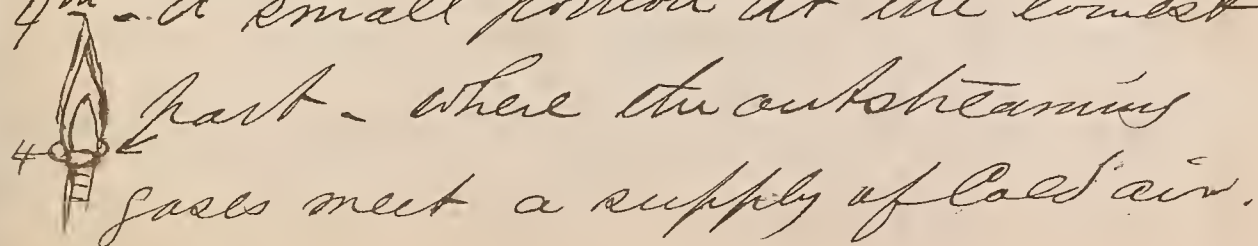 4th - a small portion at the lowest
part - where the outstreaming
4
gases meet a supply of Cold air.